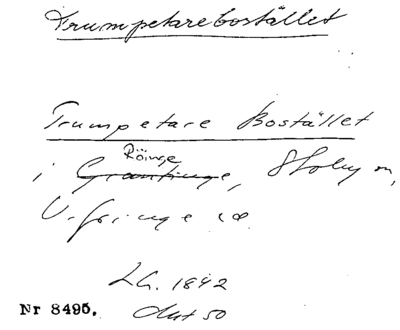 Trumpetarebostället
Trumpetare Bostället
Röinge
i Grantinge, Stoby sn,
V. Göinge hd.
LG. 1842
Akt 50
Nr 8495.